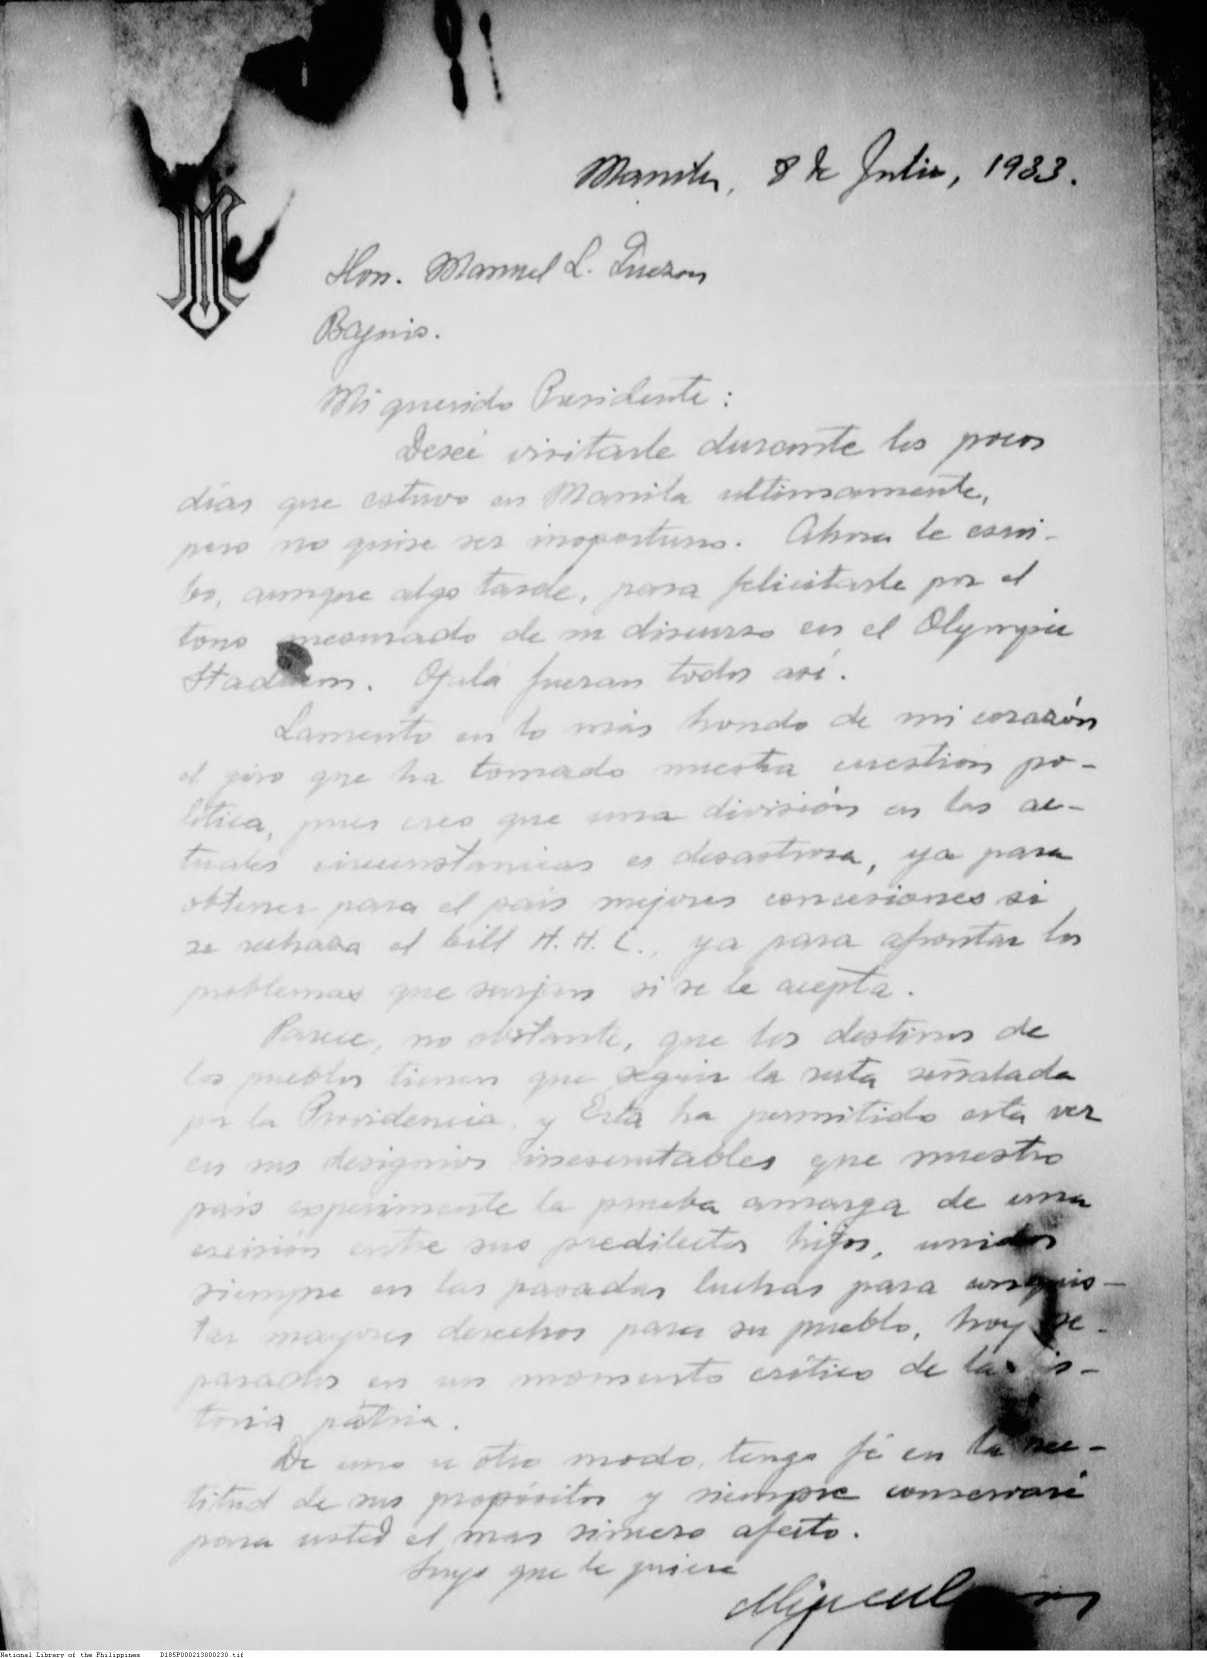 Manila, 8 de Julio, 1933.
Hon. Manuel L. Quezon
Baguio.
Mi querido Presidente:
Deseé visitarle durante los pocos
días que estuvo en Manila ultimamente,
pero no quise ser inoportuno. Ahora le escri-
bo, aunque algo tarde, para felicitarle por el
tono mesurado de su discurso en el Olympic
Stadium. Ojalá fueran todos así.
Lamento en lo más hondo de mi corazón
el giro que ha tomado nuestra cuestion po-
lítica, pues creo que una división en las ac-
tuales circunstancias es desastrosa, ya para
obtener para el país mejores concesiones si
se rechaza el bill H. H. C., ya para afrontar los
problemas que surjan si se le acepta.
Parece, no obstante, que los destinos de
los pueblos tienen que seguir la ruta señalada
por la Providencia, y Esta ha permitido esta vez
en sus designios inescrutables que nuestro
país experimente la prueba amarga de una
escisión entre sus predilectos hijos, unidos
siempre en las pasadas luchas para conquis-
tar mayores derechos para su pueblo, hoy se-
parados en un momento crítico de la is-
toria patria.
De uno u otro modo, tengo fé en la rec-
titud de sus propósitos y siempre conservaré
para usted el mas sincero afecto.
Suyo que le quiere
Miguel
National Library of the Philippines D185P000213000230.tif